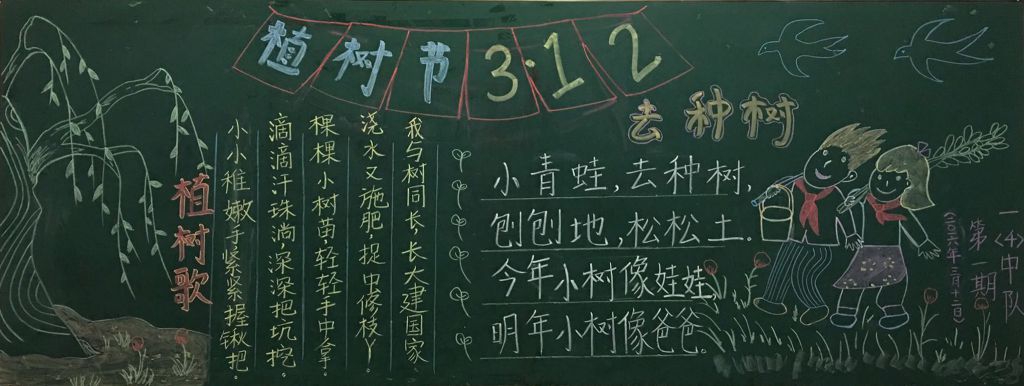 植树节3·12
植树歌
小小稚嫩手紧紧握锹把。
滴滴汗珠淌,深深把坑挖。
棵棵小树苗,轻轻手中拿。
浇水又施肥,捉虫修枝丫。
我与树同长,长大建国家。
去种树
小青蛙,去种树,
刨刨地,松松土.
今年小树像娃娃,
明年小树像爸爸。
一〈4〉中队
第一期